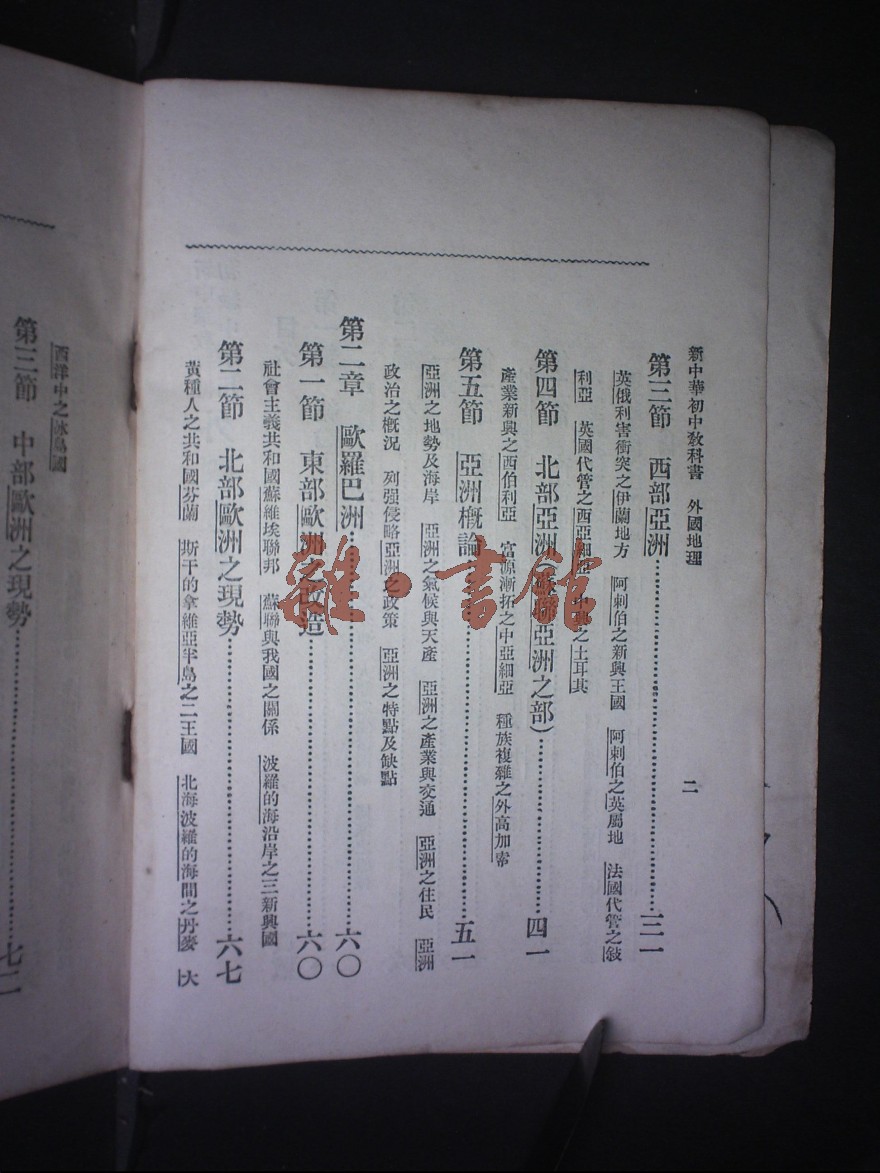 新中華初中敎科書　外國地理　二
第三節　西部亞洲……三一
英俄利害衝突之伊蘭地方　阿剌伯之新興王國　阿剌伯之英屬地　法國代管之敍
利亞　英國代管之西亞細亞　中興之土耳其
第四節　北部亞洲（蘇聯亞洲之部）……四一
產業新興之西伯利亞　富源漸拓之中亞細亞　種族複雜之外高加索
第五節　亞洲槪論……五一
亞洲之地勢及海岸　亞洲之氣候與天產　亞洲之產業與交通　亞洲之住民　亞洲
政治之槪況　列强侵略亞洲之政策　亞洲之特點及缺點
第二章　歐羅巴洲……六〇
第一節　東部歐洲之改造……六〇
社會主義共和國蘇維埃聯邦　蘇聯與我國之關係　波羅的海沿岸之三新興國
第二節　北部歐洲之現勢……六七
黃種人之共和國芬蘭　斯干的拿維亞半島之二王國　北海波羅的海間之丹麥　大
西洋中之冰島國
第三節　中部歐洲之現勢……七二
雜·書館